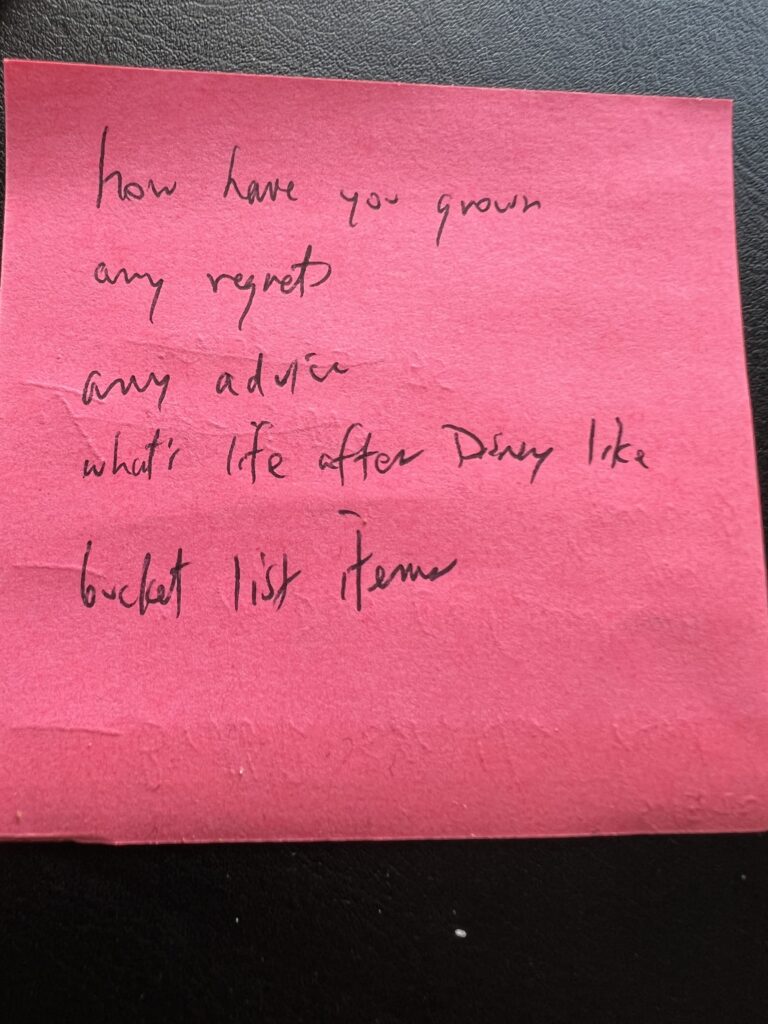 how have you grown
any regrets
any advice
what's life after Disney like
bucket list items